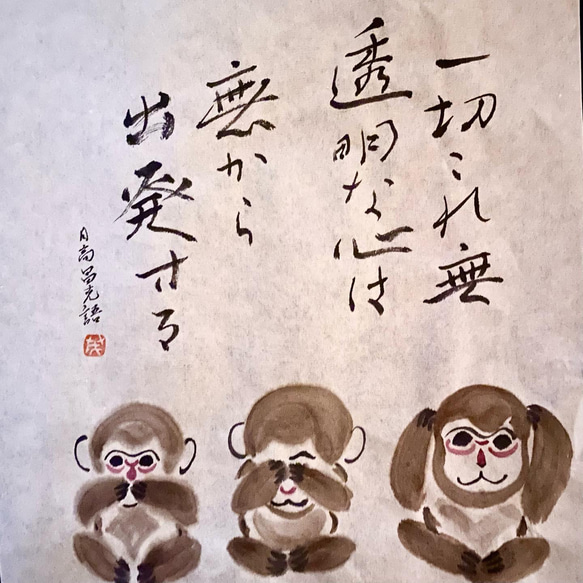 一切これ無
透明な心は
無から
出発する
日高昌克語